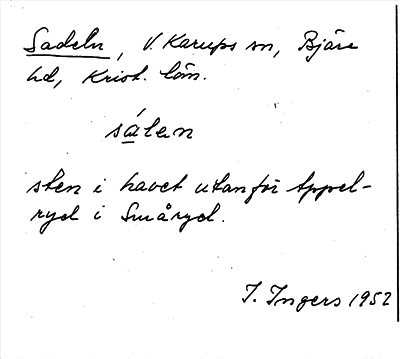 Sadeln, V. Karups sn, Bjäre
hd, Krist. län.
sálen
sten i havet utanför Appel-
ryd i Småryd.
I. Ingers 1952